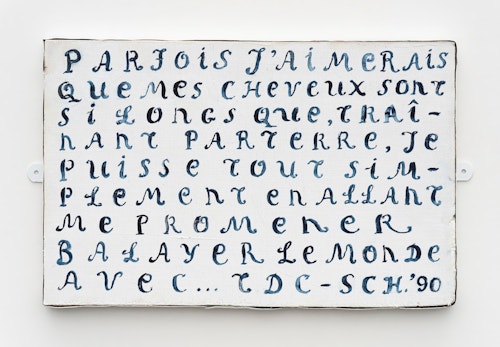 PARFOIS J'AIMERAIS
QUE MES CHEVEUX SONT
SI LONGS QUE, TRAÎ-
NANT PARTERRE, JE
PUISSE TOUT SIM-
PLEMENT EN ALLANT
ME PROMENER
BALAYER LE MONDE
AVEC... TDC-SCH.'90